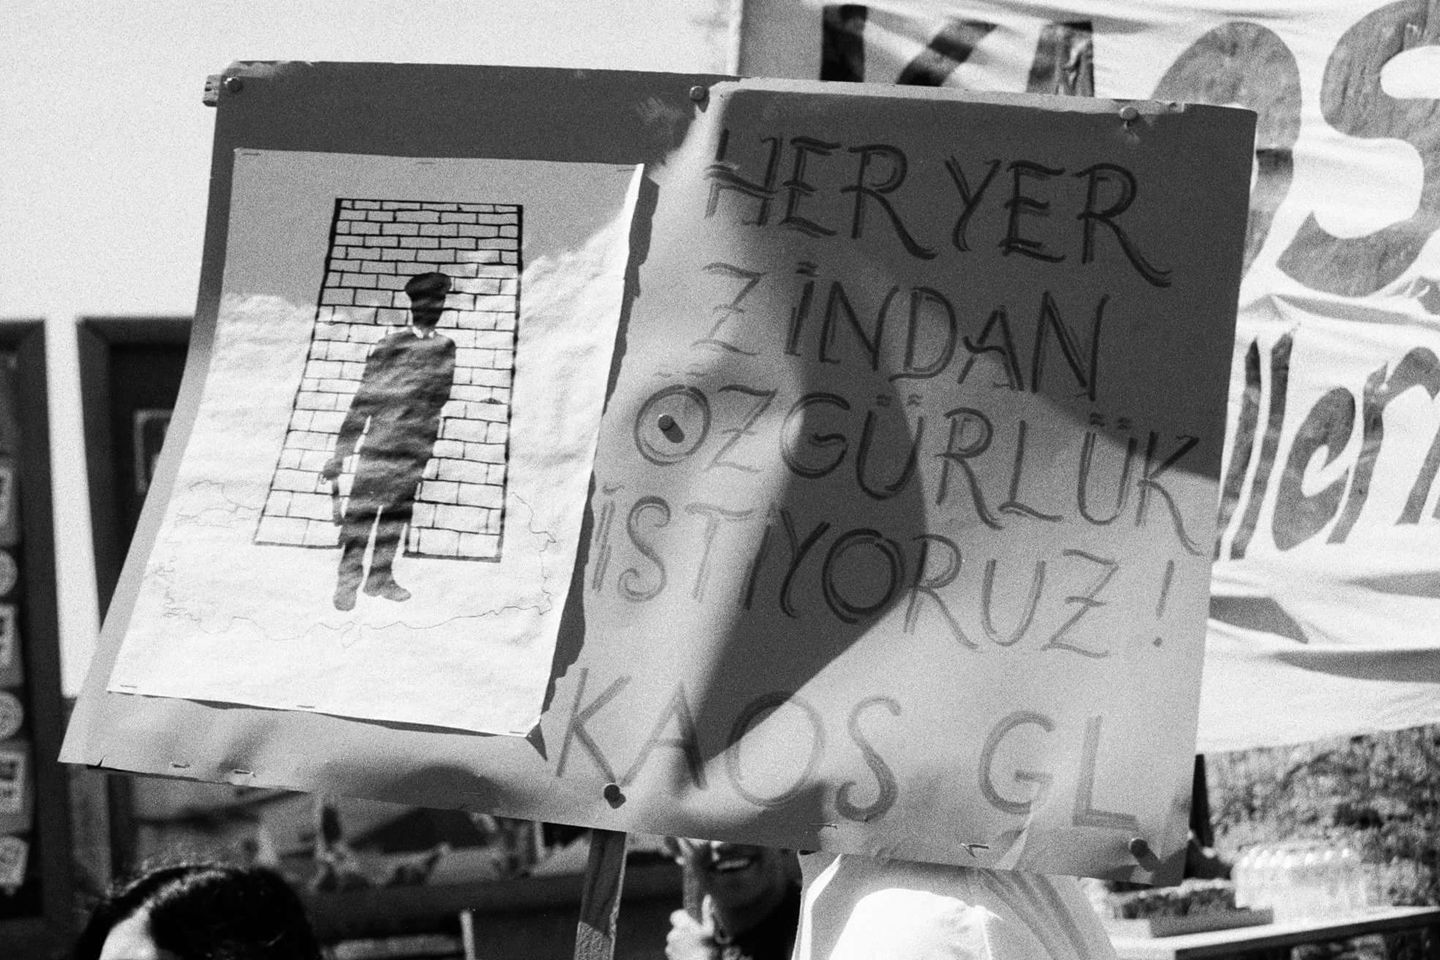 HER YER
ZİNDAN
ÖZGÜRLÜK
İSTİYORUZ!
KAOS GL
KAOS